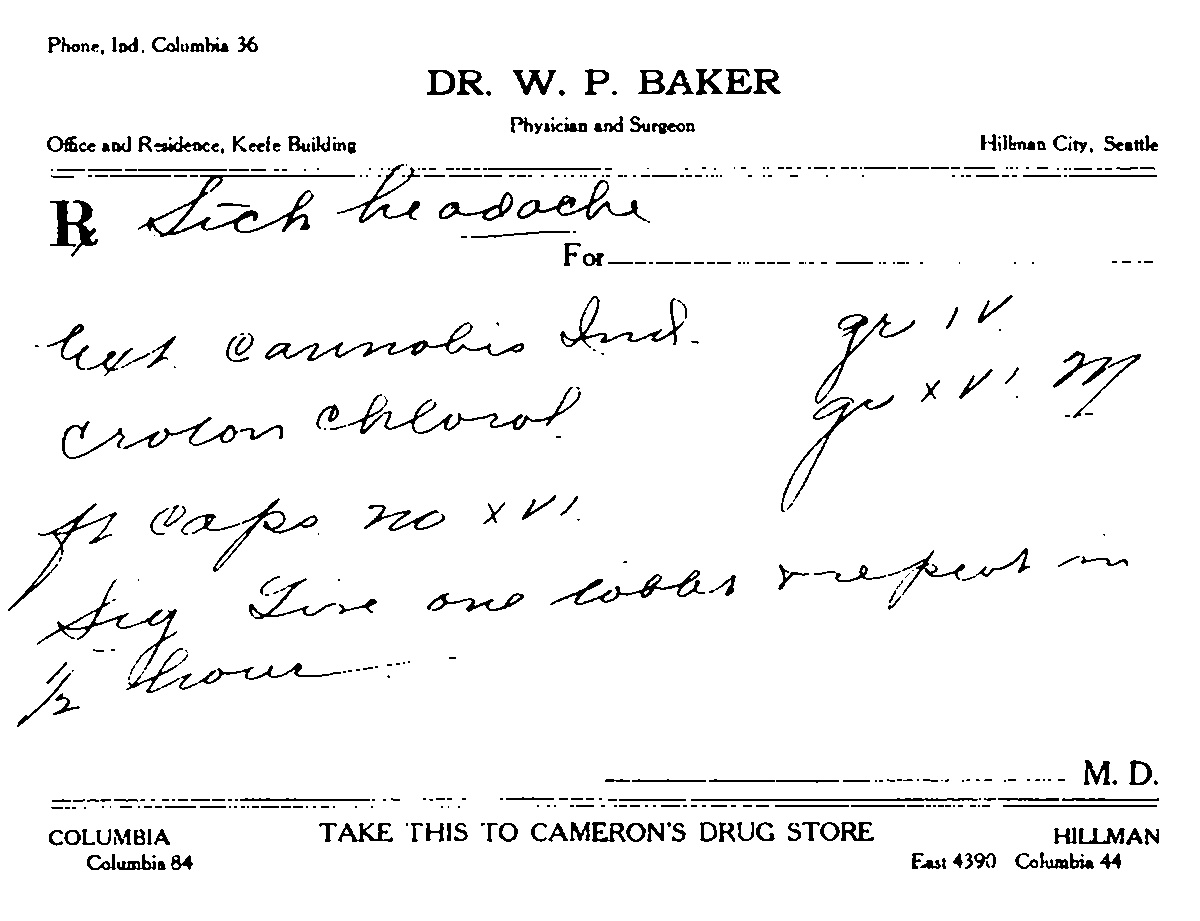 Phone, Ind. Columbia 36
DR. W. P. BAKER
Physician and Surgeon
Office and Residence, Keefe Building Hillman City, Seattle
Rx Sick headache
For
Ext Cannabis Ind. gr iv
Croton Chloral gr xvi M
ft Caps no xvi
Sig one & repeat in
1/2 hour
M. D.
COLUMBIA TAKE THIS TO CAMERON'S DRUG STORE HILLMAN
Columbia 84 East 4390 Columbia 44